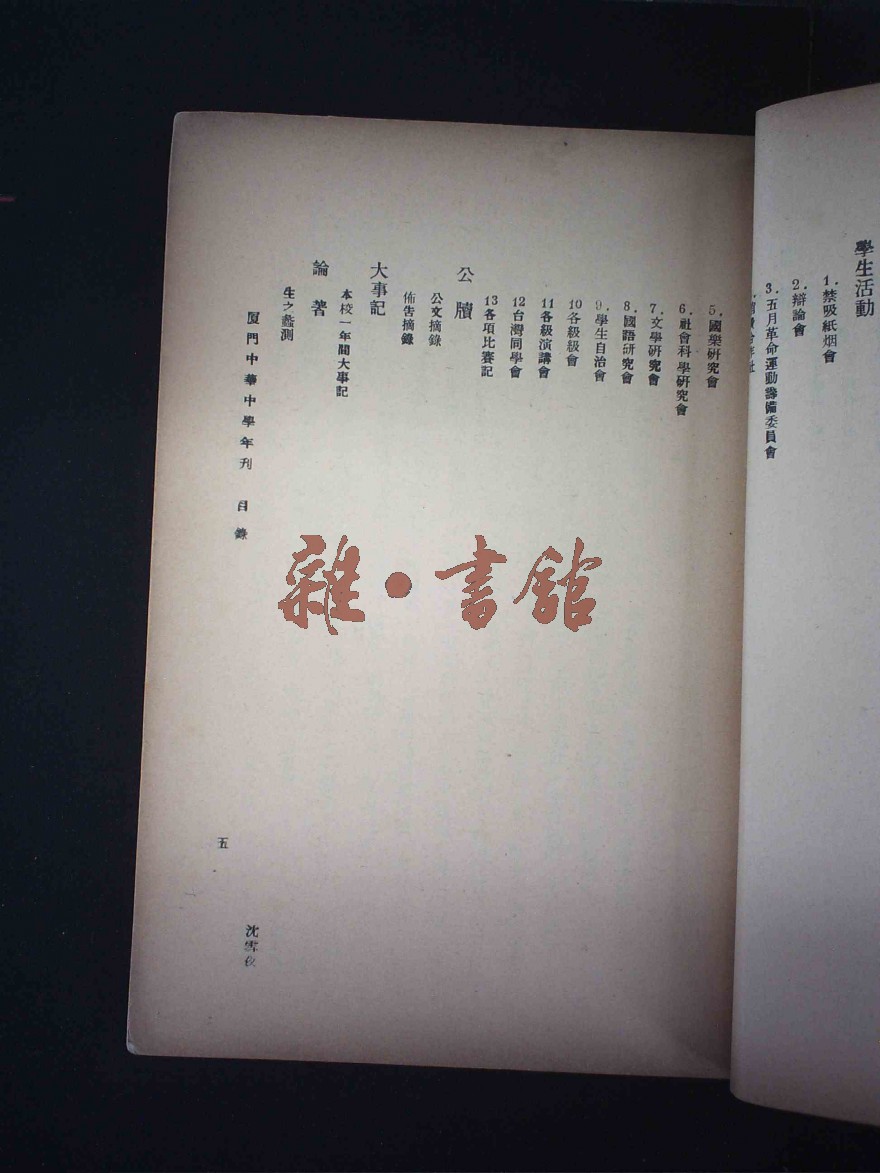 學生活動
1.禁吸紙烟會
2.辯論會
3.五月革命運動籌備委員會
5.國樂研究會
6.社會科學研究會
7.文學研究會
8.國語研究會
9.學生自治會
10各級級會
11各級演講會
12台灣同學會
13各項比賽記
公牘
公文摘錄
佈告摘錄
大事記
本校一年間大事記
論著
生之蠡測
沈雪
厦門中華中學年刊 目錄
五
雜·書館